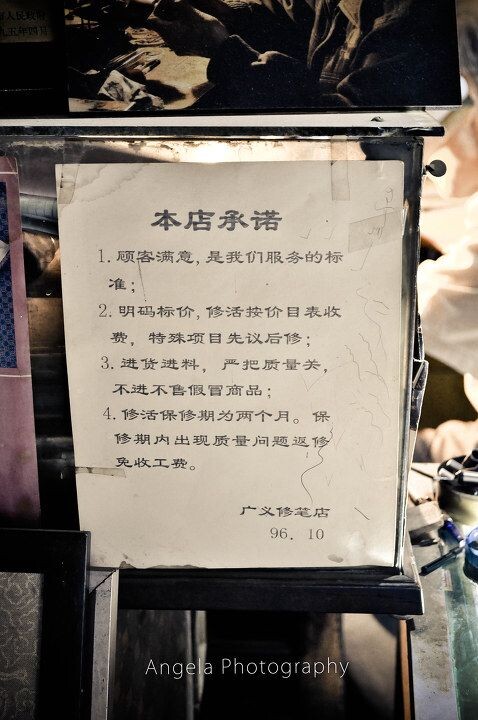 人民政府
九五年四月
本店承诺
1. 顾客满意, 是我们服务的标
准;
2. 明码标价, 修活按价目表收
费, 特殊项目先议后修;
3. 进货进料, 严把质量关,
不进不售假冒商品;
4. 修活保修期为两个月。保
修期内出现质量问题返修
免收工费。
广义修笔店
96. 10
Angela Photography